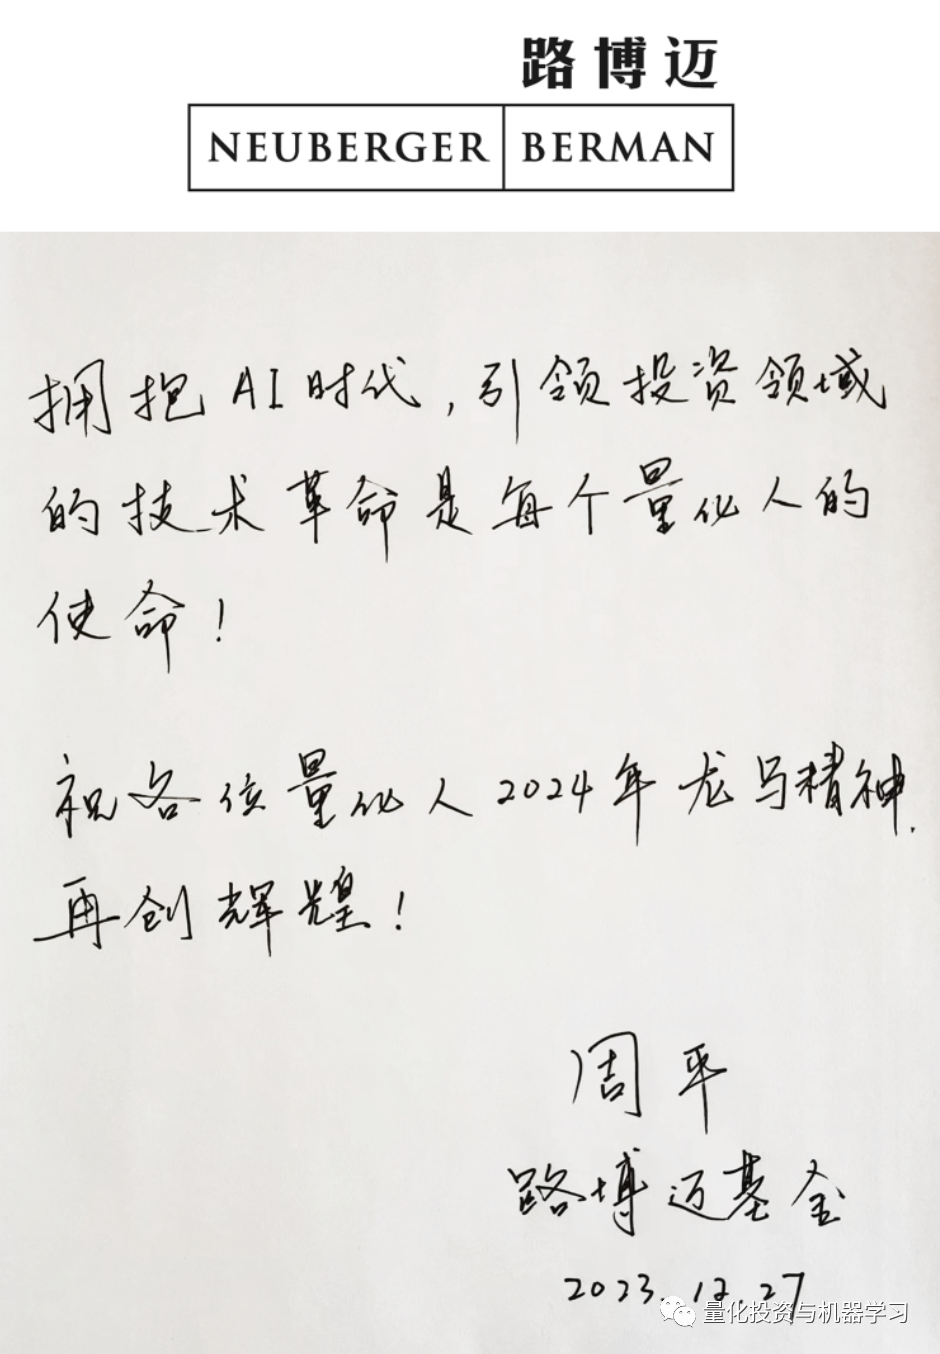 路博迈
NEUBERGER BERMAN
拥抱AI时代，引领投资领域
的技术革命是每个量化人的
使命！
祝各位量化人2024年龙马精神，
再创辉煌！
周平
路博迈基金
2023.12.27
量化投资与机器学习